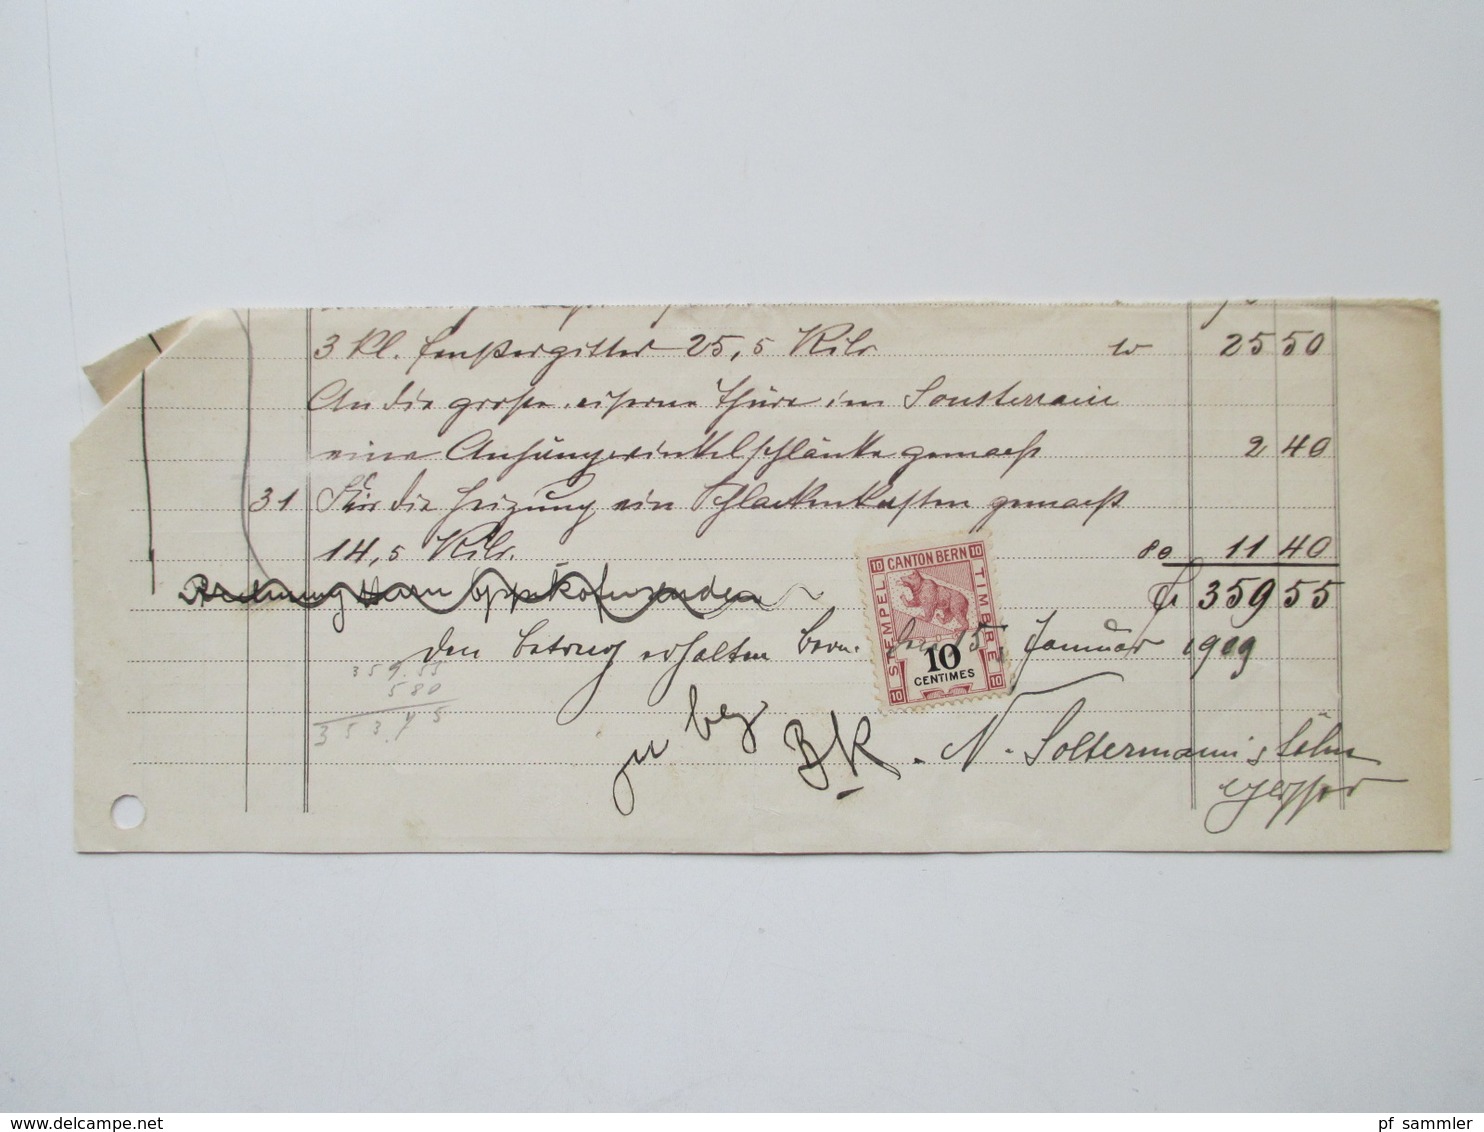 3 kl. Fenstergitter 25,5 Kilo 25 50
An die große eiserne Thüre im Souterrain
eine Anhängewinkelschläufe gemacht 2 40
31 Für die Heizung ein Schlackenkasten gemacht
14,5 Kilo. 80 11 40
Rechnung Herrn
fr 359 55
den Betrag erhalten Bern. den 15. Januar 1909
359.55
580
353.75
zu bez
BK. N. Soltermann's Söhne
CANTON BERN
STEMPEL
TIMBRE
10
10
10
10
10
CENTIMES
www.delcampe.net
pf_sammler